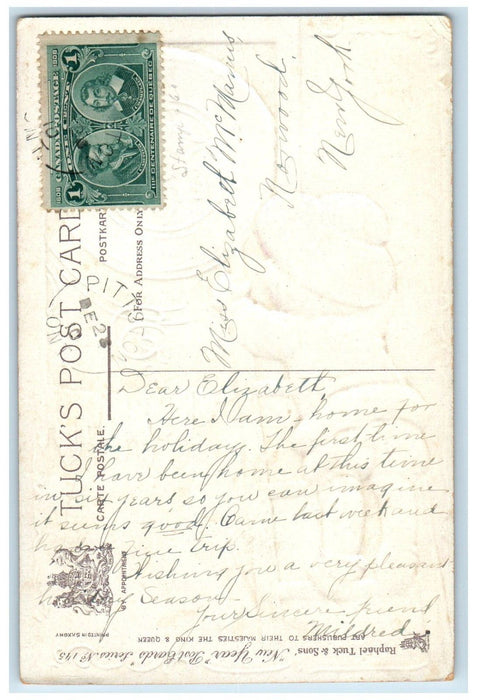 CANADA POSTAGE
1608 1908
1 ONE CENT 1
IIIE CENTENAIRE DE QUEBEC
CARTIER
CHAMPLAIN
Stamp 1.60
PITT
DE 2
ONT
TUCK'S POST CARD
CARTE POSTALE.
POSTKARTE
(FOR ADDRESS ONLY)
Miss Elizabeth McManus
Norwood.
New York
Dear Elizabeth,
Here I am home for
the holiday. The first time
I have been home at this time
in six years so you can imagine
it seems good. Came last week and
had a fine trip.
Wishing you a very pleasant
holiday season
Your sincere friend
Mildred
BY APPOINTMENT
PRINTED IN SAXONY
Raphael Tuck & Sons' "New Year" Post Cards" Series No 145
ART PUBLISHERS TO THEIR MAJESTIES THE KING & QUEEN